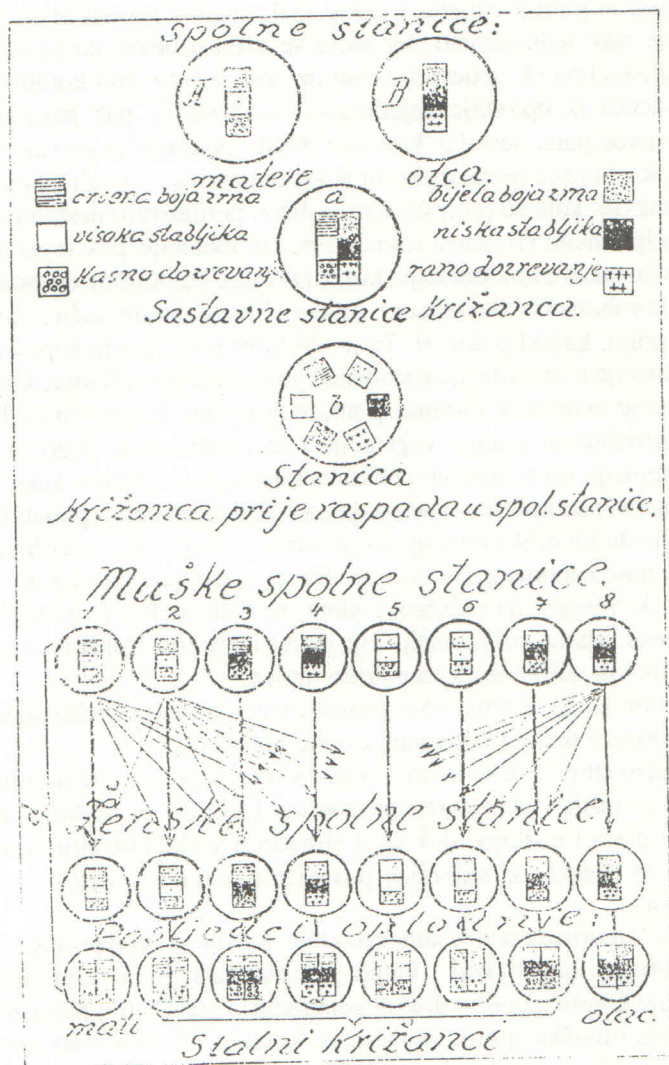 Spolne stanice:
A B
matere otca
crvena boja zrna a bijela boja zrna
visoka stabljika niska stabljika
kasno dozrevanje rano dozrevanje
Sastavne stanice Križanca.
b
Stanica
Križanca prije raspada u spol. stanice.
Muške spolne stanice
1 2 3 4 5 6 7 8
Ženske spolne stanice
Posljedci oplodnje:
mati otac
Stalni križanci